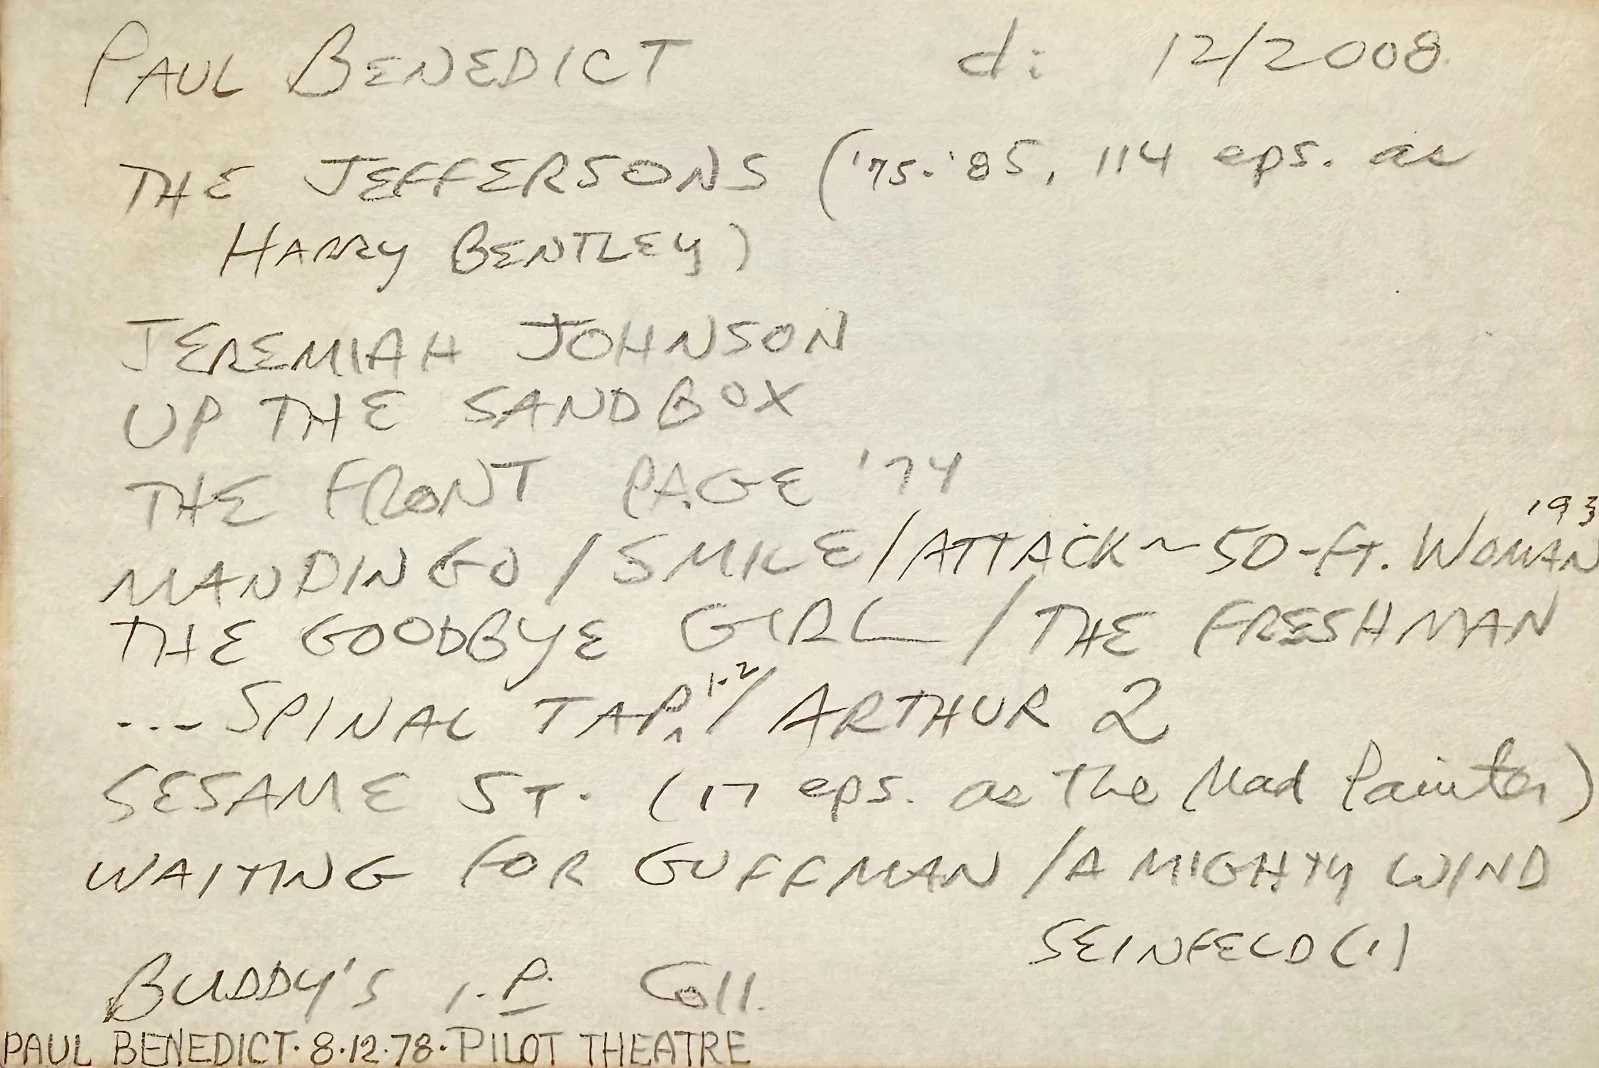 PAUL BENEDICT d: 12/2008
THE JEFFERSONS ('75-'85, 114 eps. as
HARRY BENTLEY)
JEREMIAH JOHNSON
UP THE SANDBOX
THE FRONT PAGE '74
'93
MANDINGO / SMILE / ATTACK ~ 50-Ft. WOMAN
THE GOODBYE GIRL / THE FRESHMAN
... SPINAL TAP 1-2 / ARTHUR 2
SESAME ST. (17 eps. as The Mad Painter)
WAITING FOR GUFFMAN / A MIGHTY WIND
SEINFELD (1)
BUDDY'S I.P. Coll.
PAUL BENEDICT · 8·12·78 · PILOT THEATRE